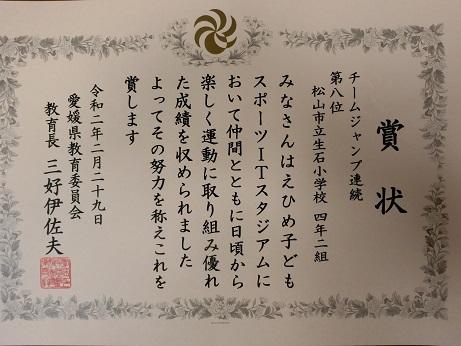 賞状
チームジャンプ連続
第八位
松山市立生石小学校 四年二組
みなさんはえひめ子ども
スポーツITスタジアムに
おいて仲間とともに日頃から
楽しく運動に取り組み優れ
た成績を収められました
よってその努力を称えこれを
賞します
令和二年二月二十九日
愛媛県教育委員会
教育長 三好伊佐夫